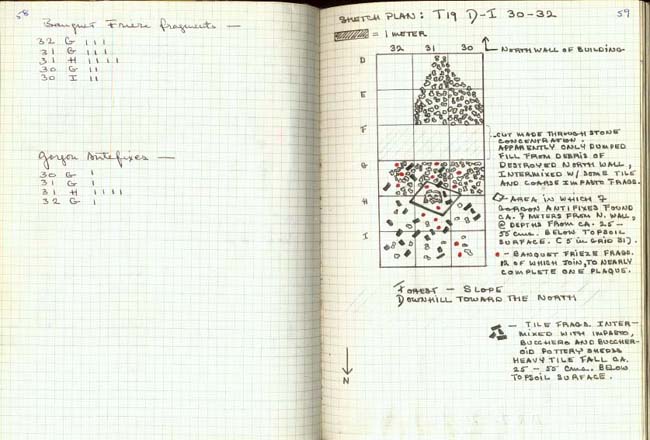 58
Banquet Frieze fragments —
32 G III
31 G III
31 H IIIII
30 G II
30 I II
Gorgon Antefixes —
30 G I
31 G I
31 H IIII
32 G I
59
SKETCH PLAN: T19 D-I 30-32
= 1 METER
NORTH WALL OF BUILDING
32 31 30
D
E
F
G
H
I
CUT MADE THROUGH STONE
CONCENTRATION.
APPARENTLY ONLY DUMPED
FILL FROM DEBRIS OF
DESTROYED NORTH WALL,
INTERMIXED W/ SOME TILE
AND COARSE IMPASTO FRAGS.
- AREA IN WHICH 7
GORGON ANTIFIXES FOUND
CA. 7 METERS FROM N. WALL,
@ DEPTHS FROM CA. 25-
55 cms. BELOW TOPSOIL
SURFACE. (5 IN GRID 31).
- BANQUET FRIEZE FRAG.
12 OF WHICH JOIN, TO NEARLY
COMPLETE ONE PLAQUE.
FOREST - SLOPE
DOWNHILL TOWARD THE NORTH
- TILE FRAGS. INTER-
MIXED WITH IMPASTO,
BUCCHERO AND BUCCHER-
OID POTTERY SHERDS
HEAVY TILE FALL CA.
25 - 55 cms. BELOW
TOPSOIL SURFACE.
N